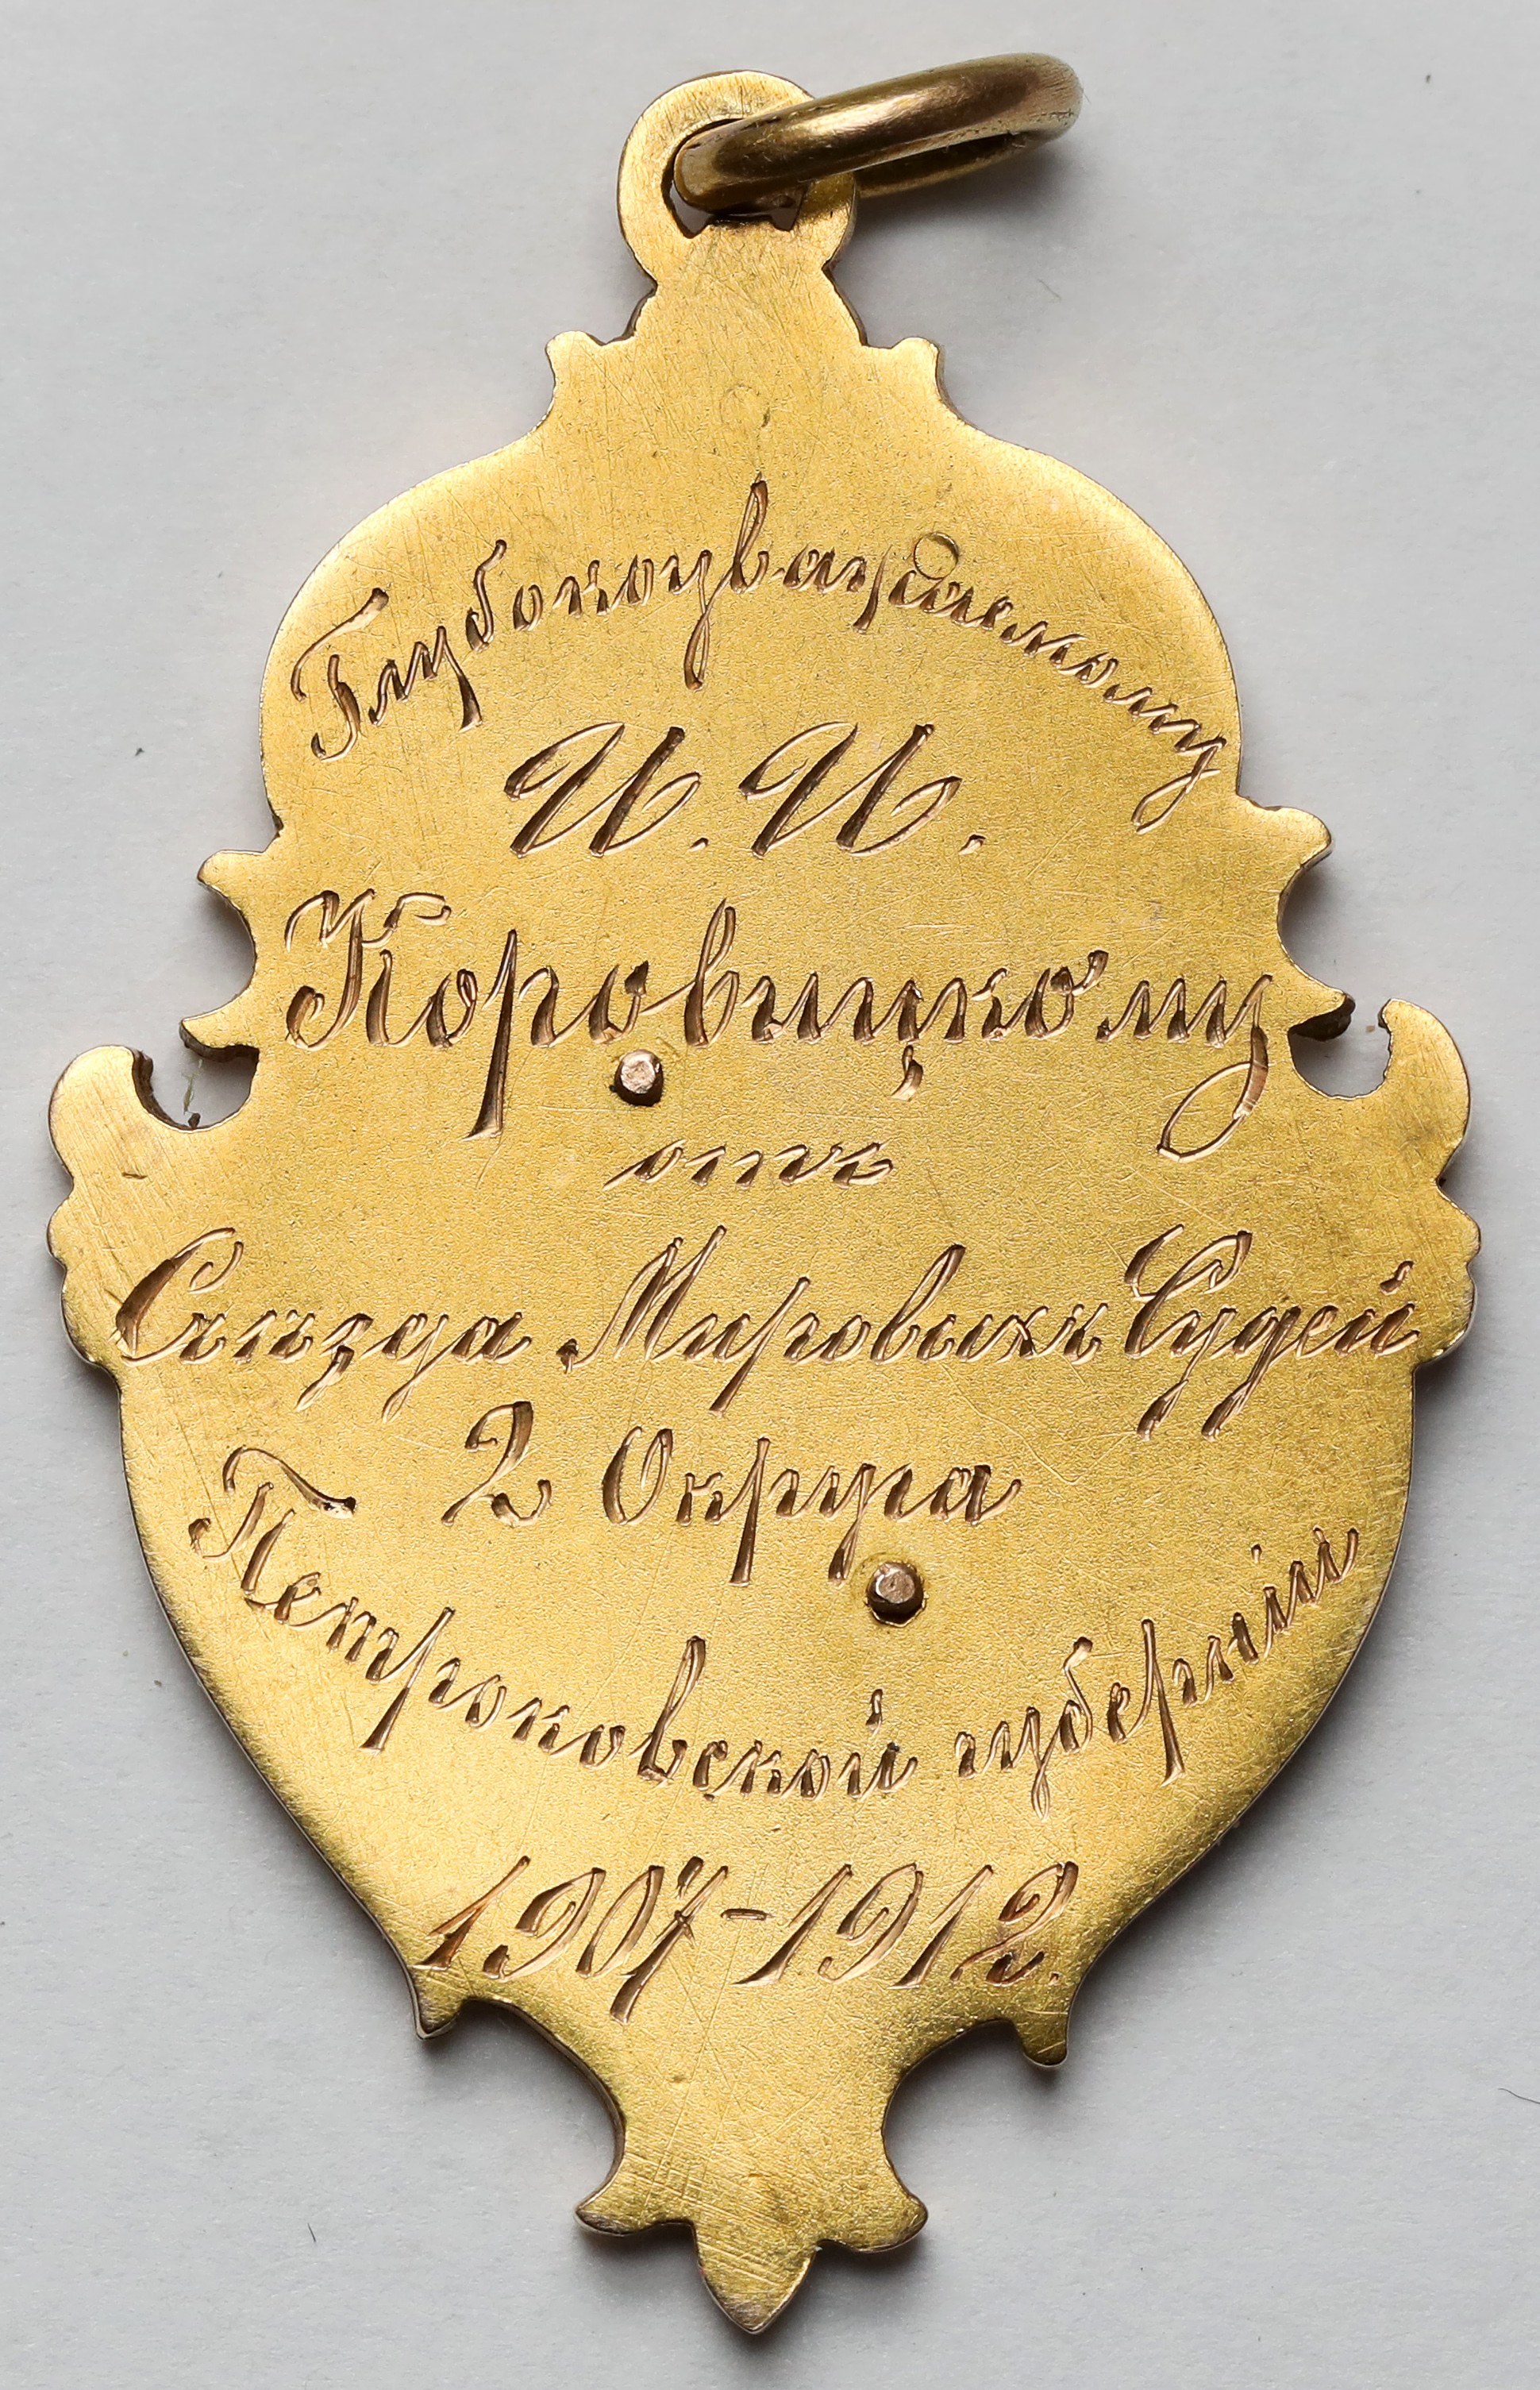 Глубокоуважаемому
И. И.
Коровицкому
отъ
Съѣзда Мировыхъ Судей
2 Округа
Петроковской губерніи
1907-1912.